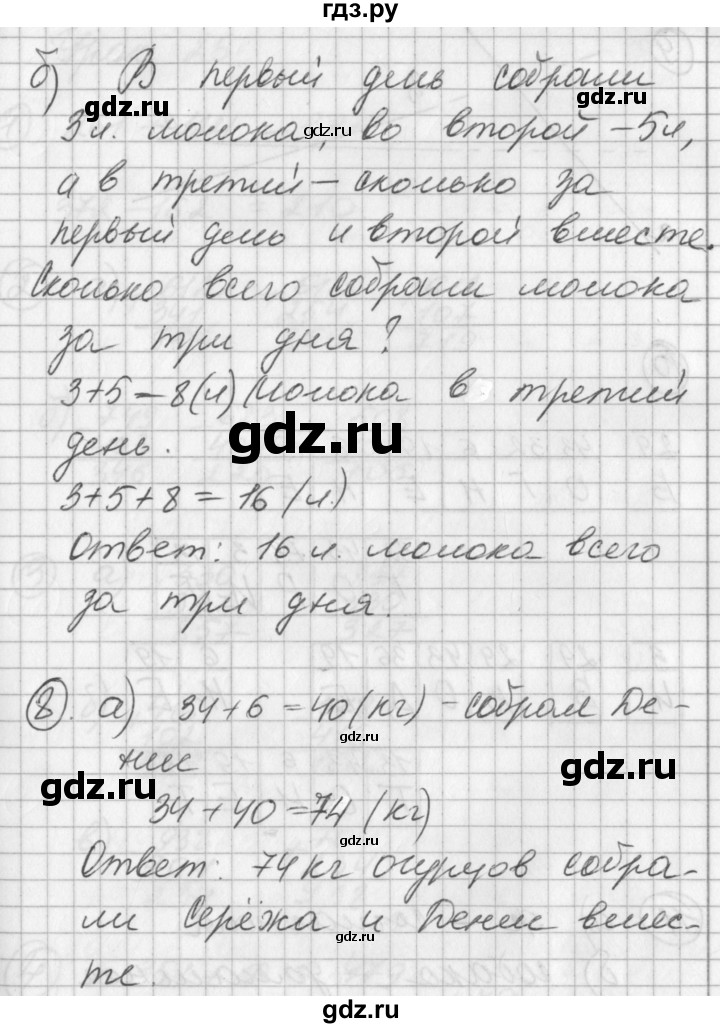 гдз.ру
б) В первый день собрали
3 л. молока, во второй – 5 л,
а в третий – сколько за
первый день и второй вместе.
Сколько всего собрали молока
за три дня?
3+5=8(л) молока в третий
день.
gdz.ru
3+5+8=16(л.)
Ответ: 16 л. молока всего
за три дня.
8. а) 34+6=40(кг) - собрал Де-
нис
34+40=74(кг)
Ответ: 74 кг огурцов собра-
ли Серёжа и Денис вмес-
те.
gdz.ru